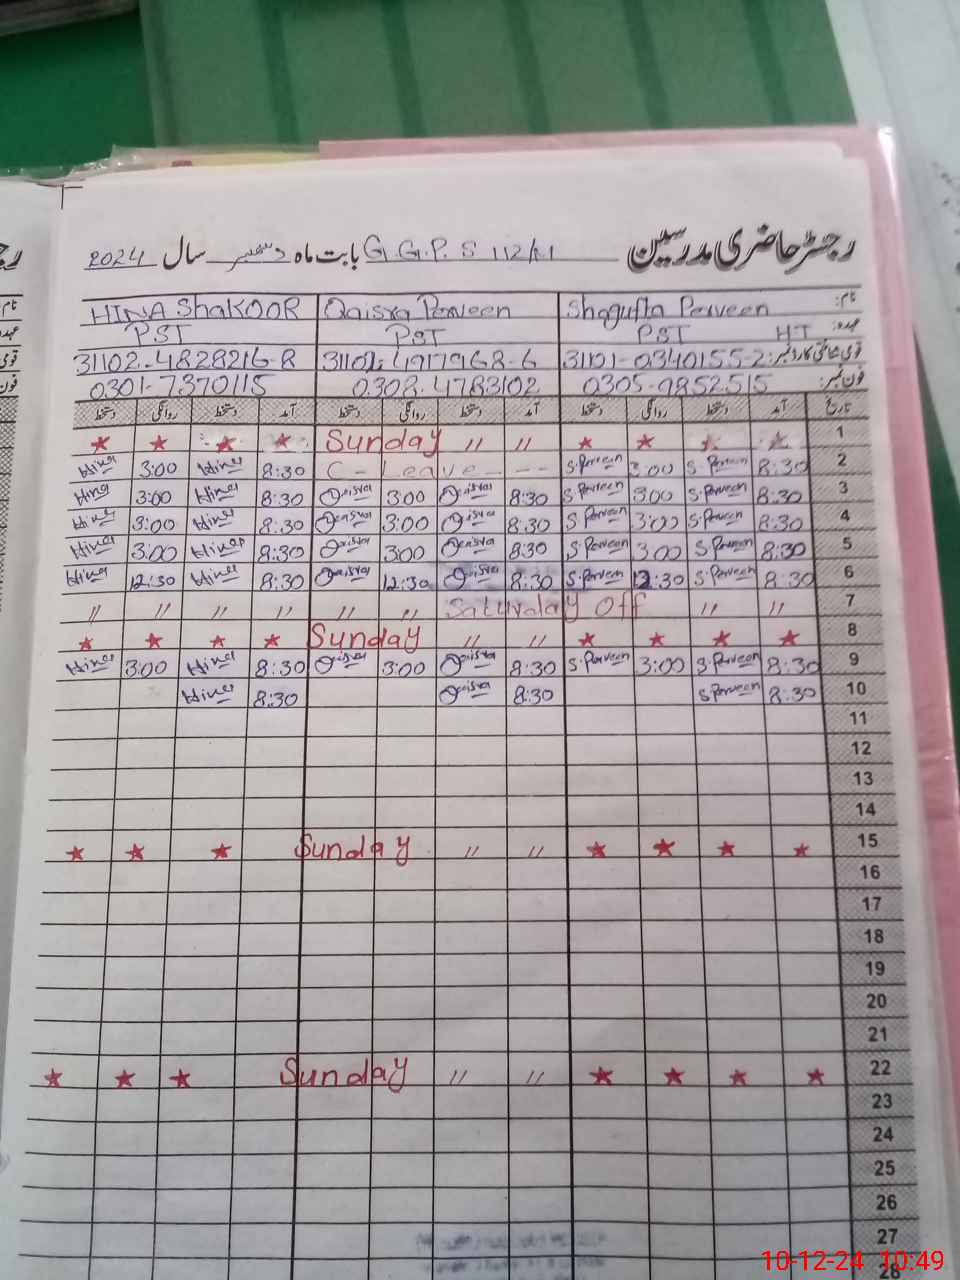 رجسٹر حاضری مدرسین G.G.P.S 112/11 بابت ماہ دسمبر سال 2024
نام: Shagufta Perveen Qaisra Perveen HINA ShAKOOR
عہدہ: PST HT PST PST
قومی شناختی کارڈ نمبر: 31101-0340155-2 31102-4917968-6 31102-4828216-8
فون نمبر: 0305-9852515 0302-4783102 0301-7370115
تاریخ آمد دستخط روانگی دستخط آمد دستخط روانگی دستخط آمد دستخط روانگی دستخط
1 ★ ★ ★ ★ Sunday " " ★ ★ ★ ★
2 8:30 S.Perveen 3:00 S.Perveen C-Leave - - - 8:30 Hina 3:00 Hina
3 8:30 S.Perveen 3:00 S.Perveen 8:30 Qaisra 3:00 Qaisra 8:30 Hina 3:00 Hina
4 8:30 S.Perveen 3:00 S.Perveen 8:30 Qaisra 3:00 Qaisra 8:30 Hina 3:00 Hina
5 8:30 S.Perveen 3:00 S.Perveen 8:30 Qaisra 3:00 Qaisra 8:30 Hina 3:00 Hina
6 8:30 S.Perveen 12:30 S.Perveen 8:30 Qaisra 12:30 Qaisra 8:30 Hina 12:30 Hina
7 " " " " " " Saturday Off " "
8 ★ ★ ★ ★ Sunday " " ★ ★ ★ ★
9 8:30 S.Perveen 3:00 S.Perveen 8:30 Qaisra 3:00 Qaisra 8:30 Hina 3:00 Hina
10 8:30 S.Perveen 8:30 Qaisra 8:30 Hina
11
12
13
14
15 ★ ★ ★ Sunday " " ★ ★ ★ ★
16
17
18
19
20
21
22 ★ ★ ★ Sunday " " ★ ★ ★ ★
23
24
25
26
27
28
10-12-24 10:49